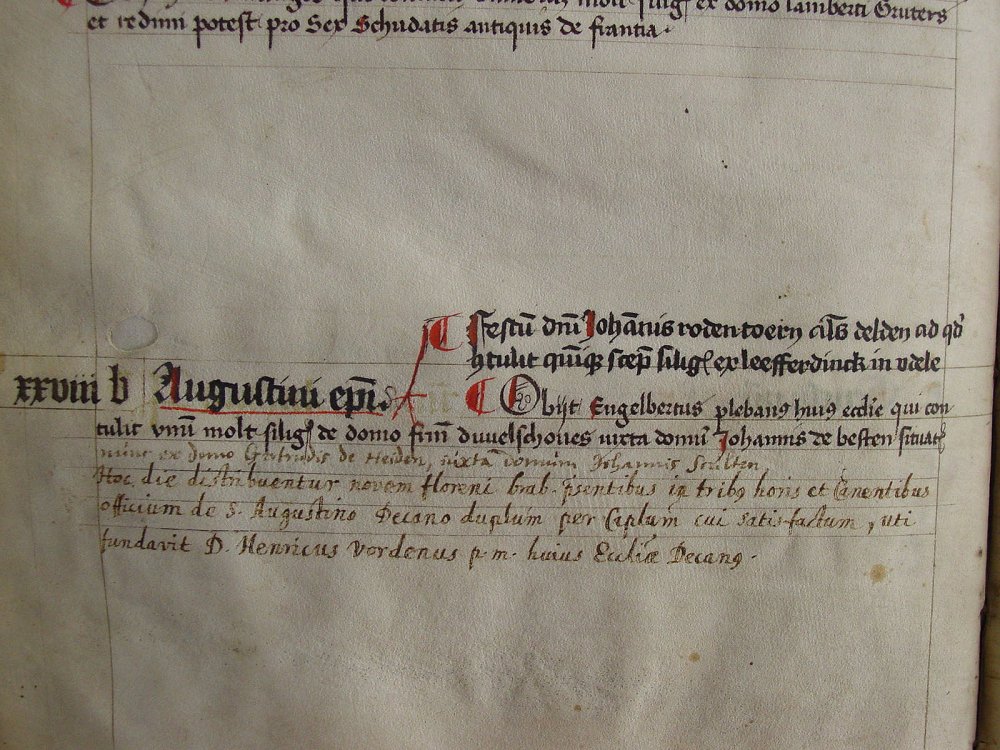 molt silig ex domo lamberti Gruters
et redimi potest pro Sex Schudatis antiquis de francia.
festū dnī Johānis rodentoern als delden ad qd
ꝯtulit quīqꝫ scep silig ex leefferdinck in vdele
xxviii b Augustini epī
Obijt Engelbertus plebanꝰ huiꝰ ecclie qui con
tulit vnū molt silig de domo duvelschoues iuxta domū Johannis de besten situat
nunc ex domo Gertrudis de Heiden, iuxta domum Johannis Scülten
Hoc die distribuentur novem floreni brab. psentibus in tribꝰ horis et Canentibus
officium de S. Augustino Decano duplum per Caplum cui satisfactum, uti
fundavit D. Henricus Vordenus p. m. huius Eccliæ Decanꝰ.